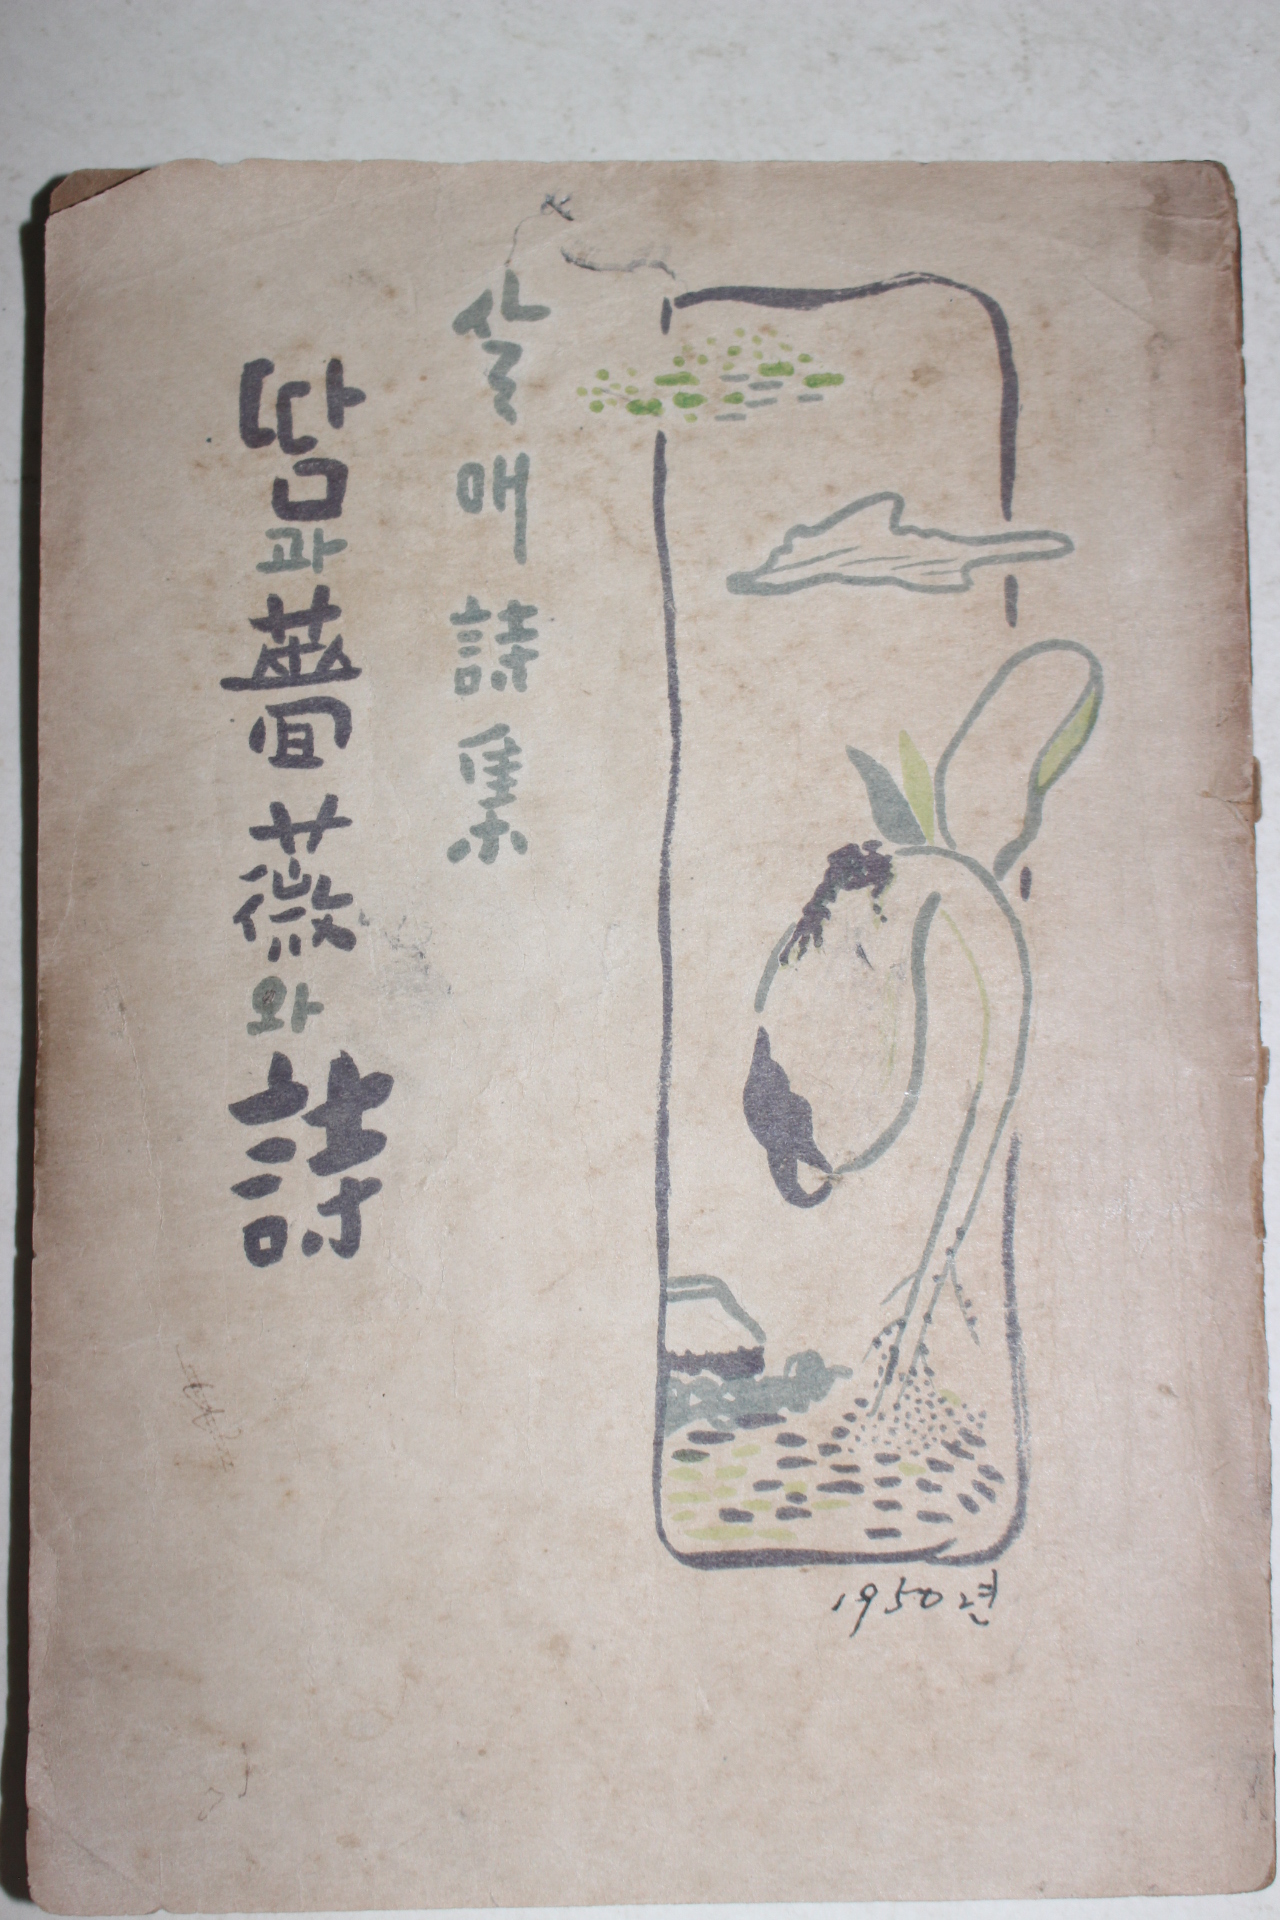 땀과薔薇와詩
살매詩集
1950년